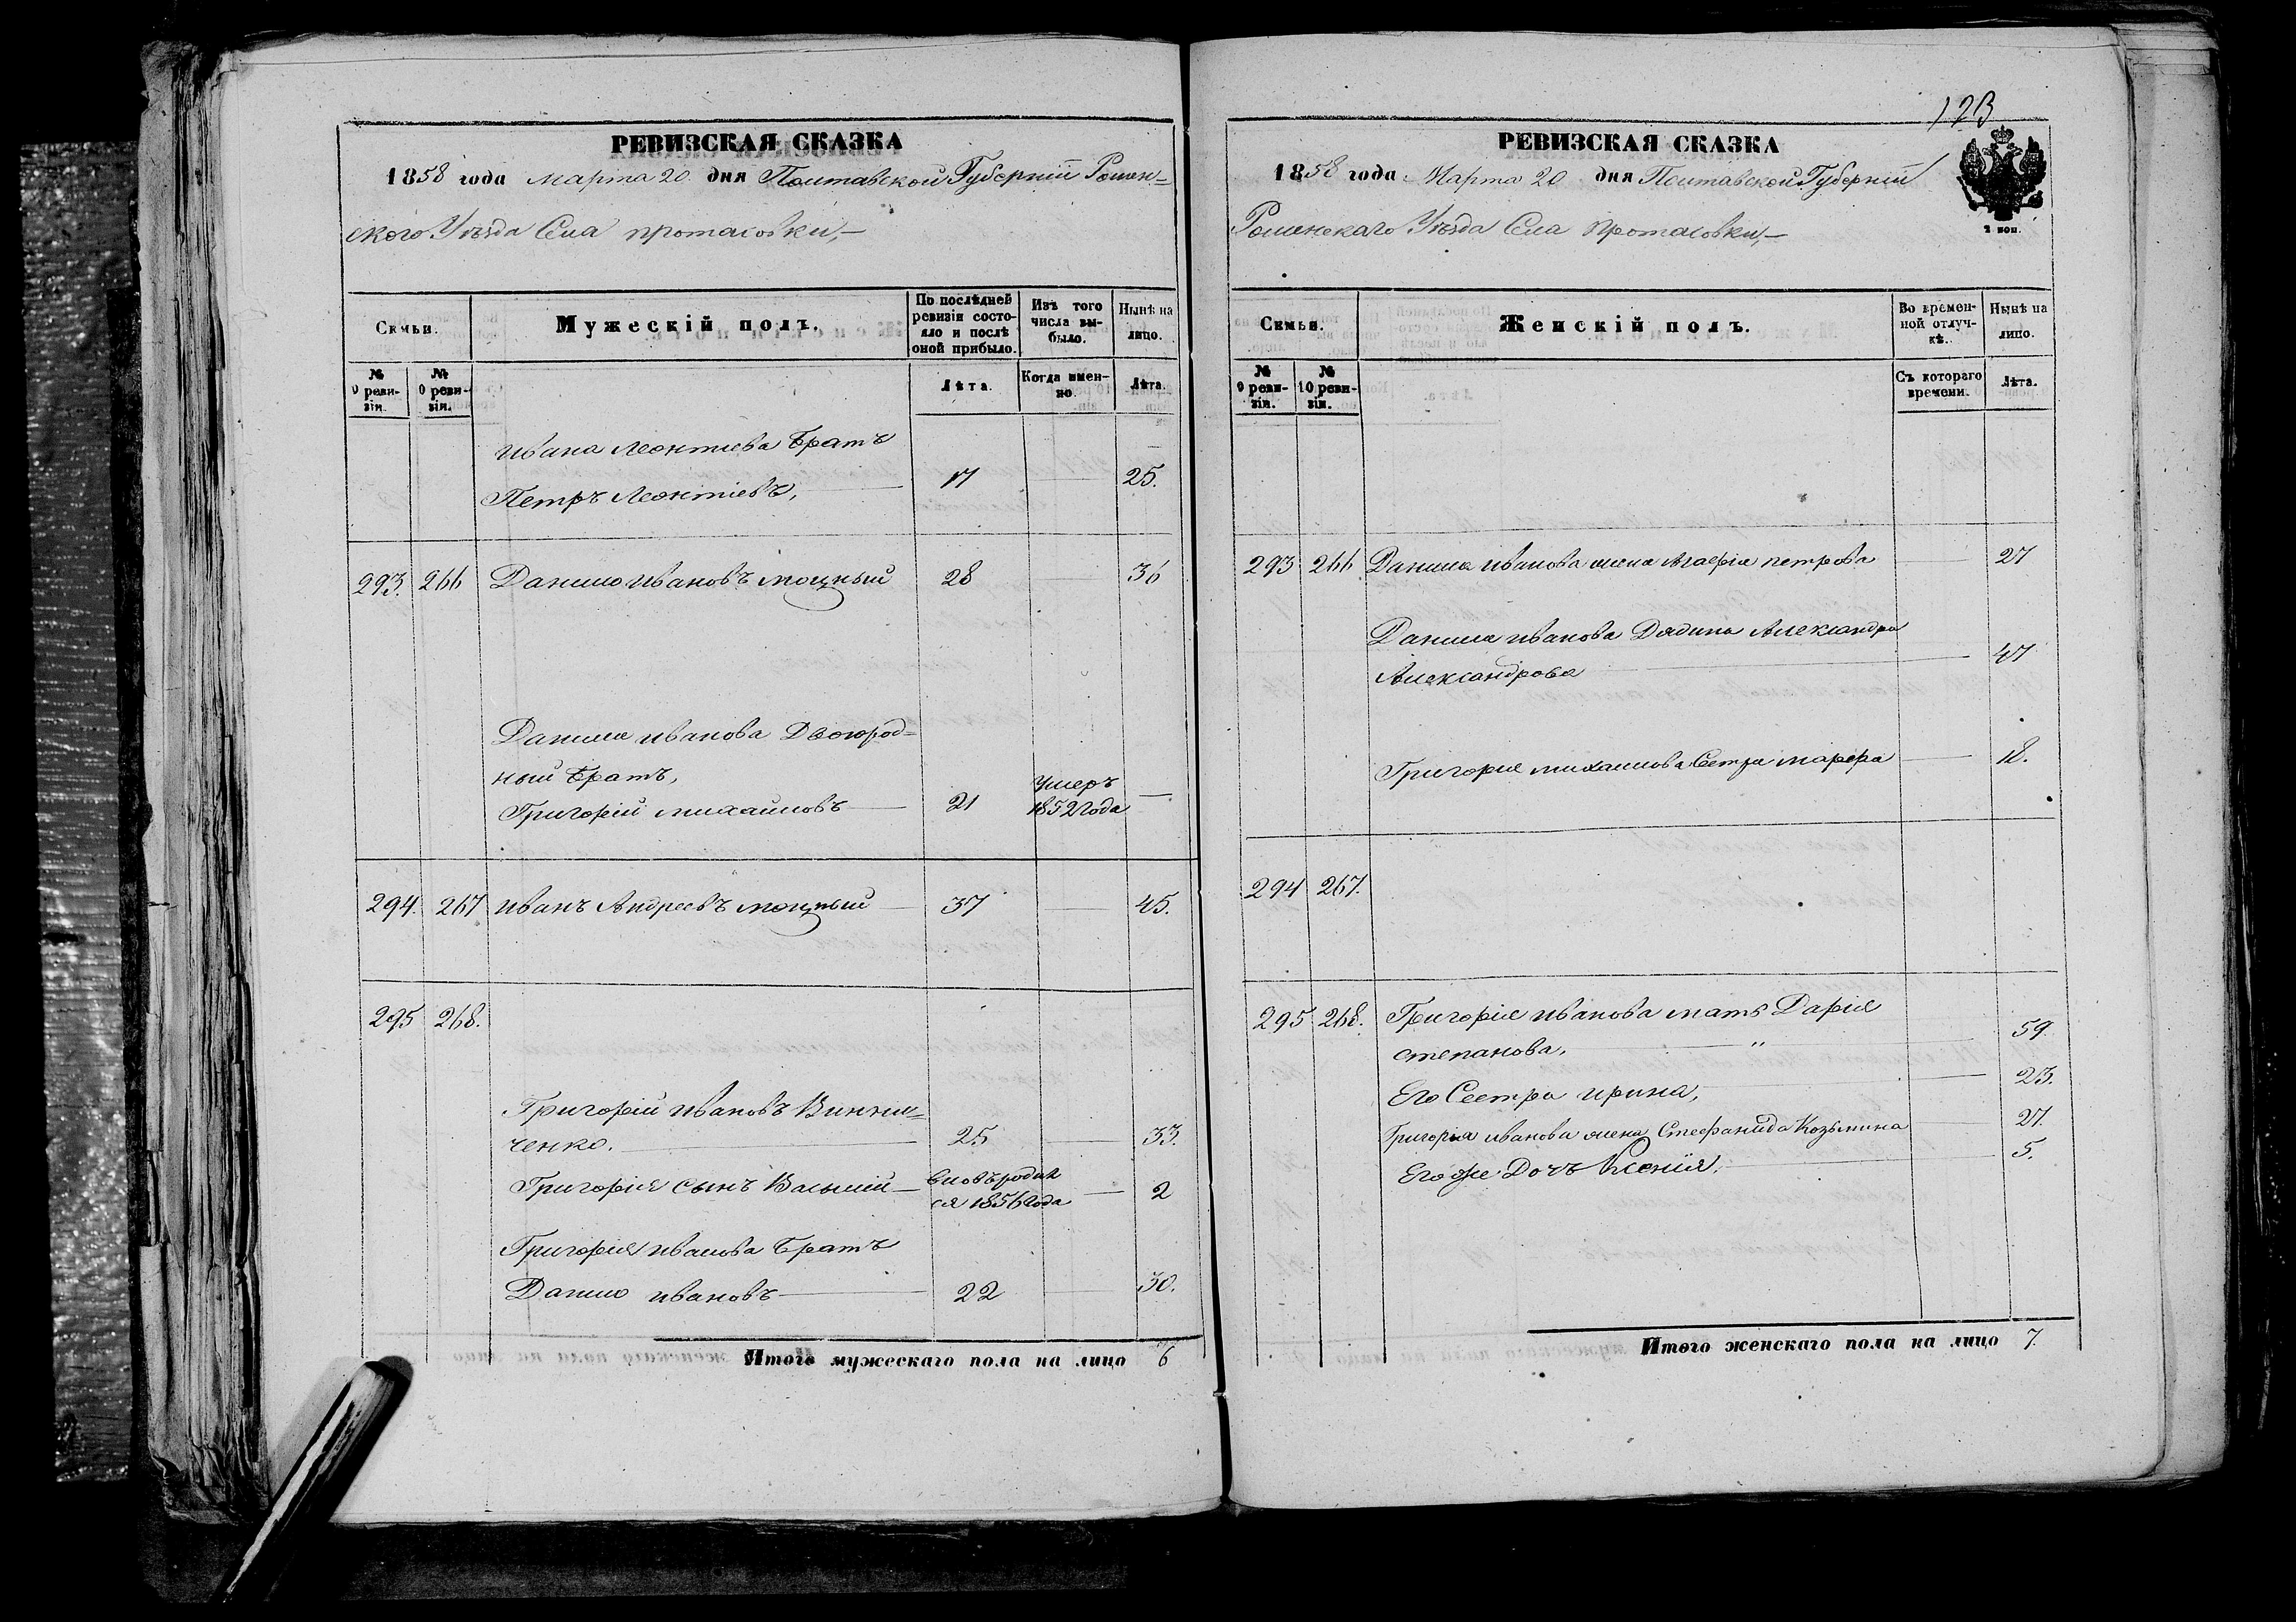 РЕВИЗСКАЯ СКАЗКА
1858 года Марта 20 дня Полтавской Губерніи Ромен-
ского Уѣзда Села Протасовки,—
Семьи.
Мужескій полъ.
По послѣдней ревизіи состояло и послѣ оной прибыло.
Изъ того числа выбыло.
Нынѣ на лицо.
№ 9 ревизіи.
№ 10 ревизіи.
Лѣта.
Когда именно.
Лѣта.
Ивана Леонтиева Братъ
Петръ Леонтіевъ, 17 25.
293. 266 Данило Ивановъ Моцный 28 36
Данила Иванова Двоюрод-
ный Братъ,
Григорій Михайловъ 21 Умеръ 1852 года —
294. 267 Иванъ Андреевъ Моцный 37 45.
295 268.
Григорій Ивановъ Винни-
ченко. 25 33.
Григорія сынъ Василій вновь родил
ся 1856 года — 2
Григорія Иванова Братъ
Данило Ивановъ 22 30.
Итого мужескаго пола на лицо 6
123
РЕВИЗСКАЯ СКАЗКА
1858 года Марта 20 дня Полтавской Губерніи
Роменскаго Уѣзда Села Протасовки,—
2 коп.
Семьи.
Женскій полъ.
Во временной отлучкѣ.
Нынѣ на лицо.
№ 9 ревизіи.
№ 10 ревизіи.
Съ котораго времени.
Лѣта.
293 266 Данила Иванова жена Агафія Петрова 27
Данила Иванова Дядина Александра
Александрова 47
Григорія Михайлова Сестра Марфа 18.
294 267.
295 268. Григорія Иванова мать Дарія
Степанова, " 59.
Его Сестра Ирина, 23.
Григорія Иванова жена Стефанида Козьмина 27.
Его же Дочь Ксенія. 5.
Итого женскаго пола на лицо 7.